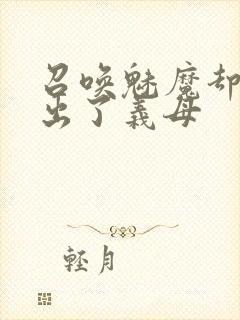 召唤魅魔却
出了義母
輕月